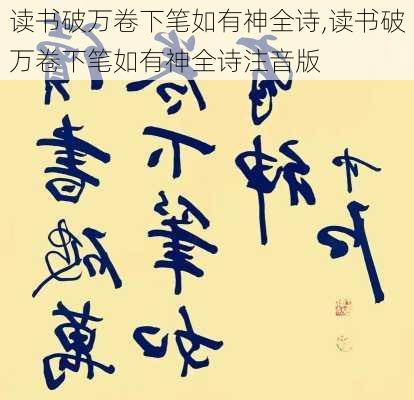 读书破万卷下笔如有神全诗,读书破
万卷下笔如有神全诗注音版
讀書破萬
卷下筆如
有神